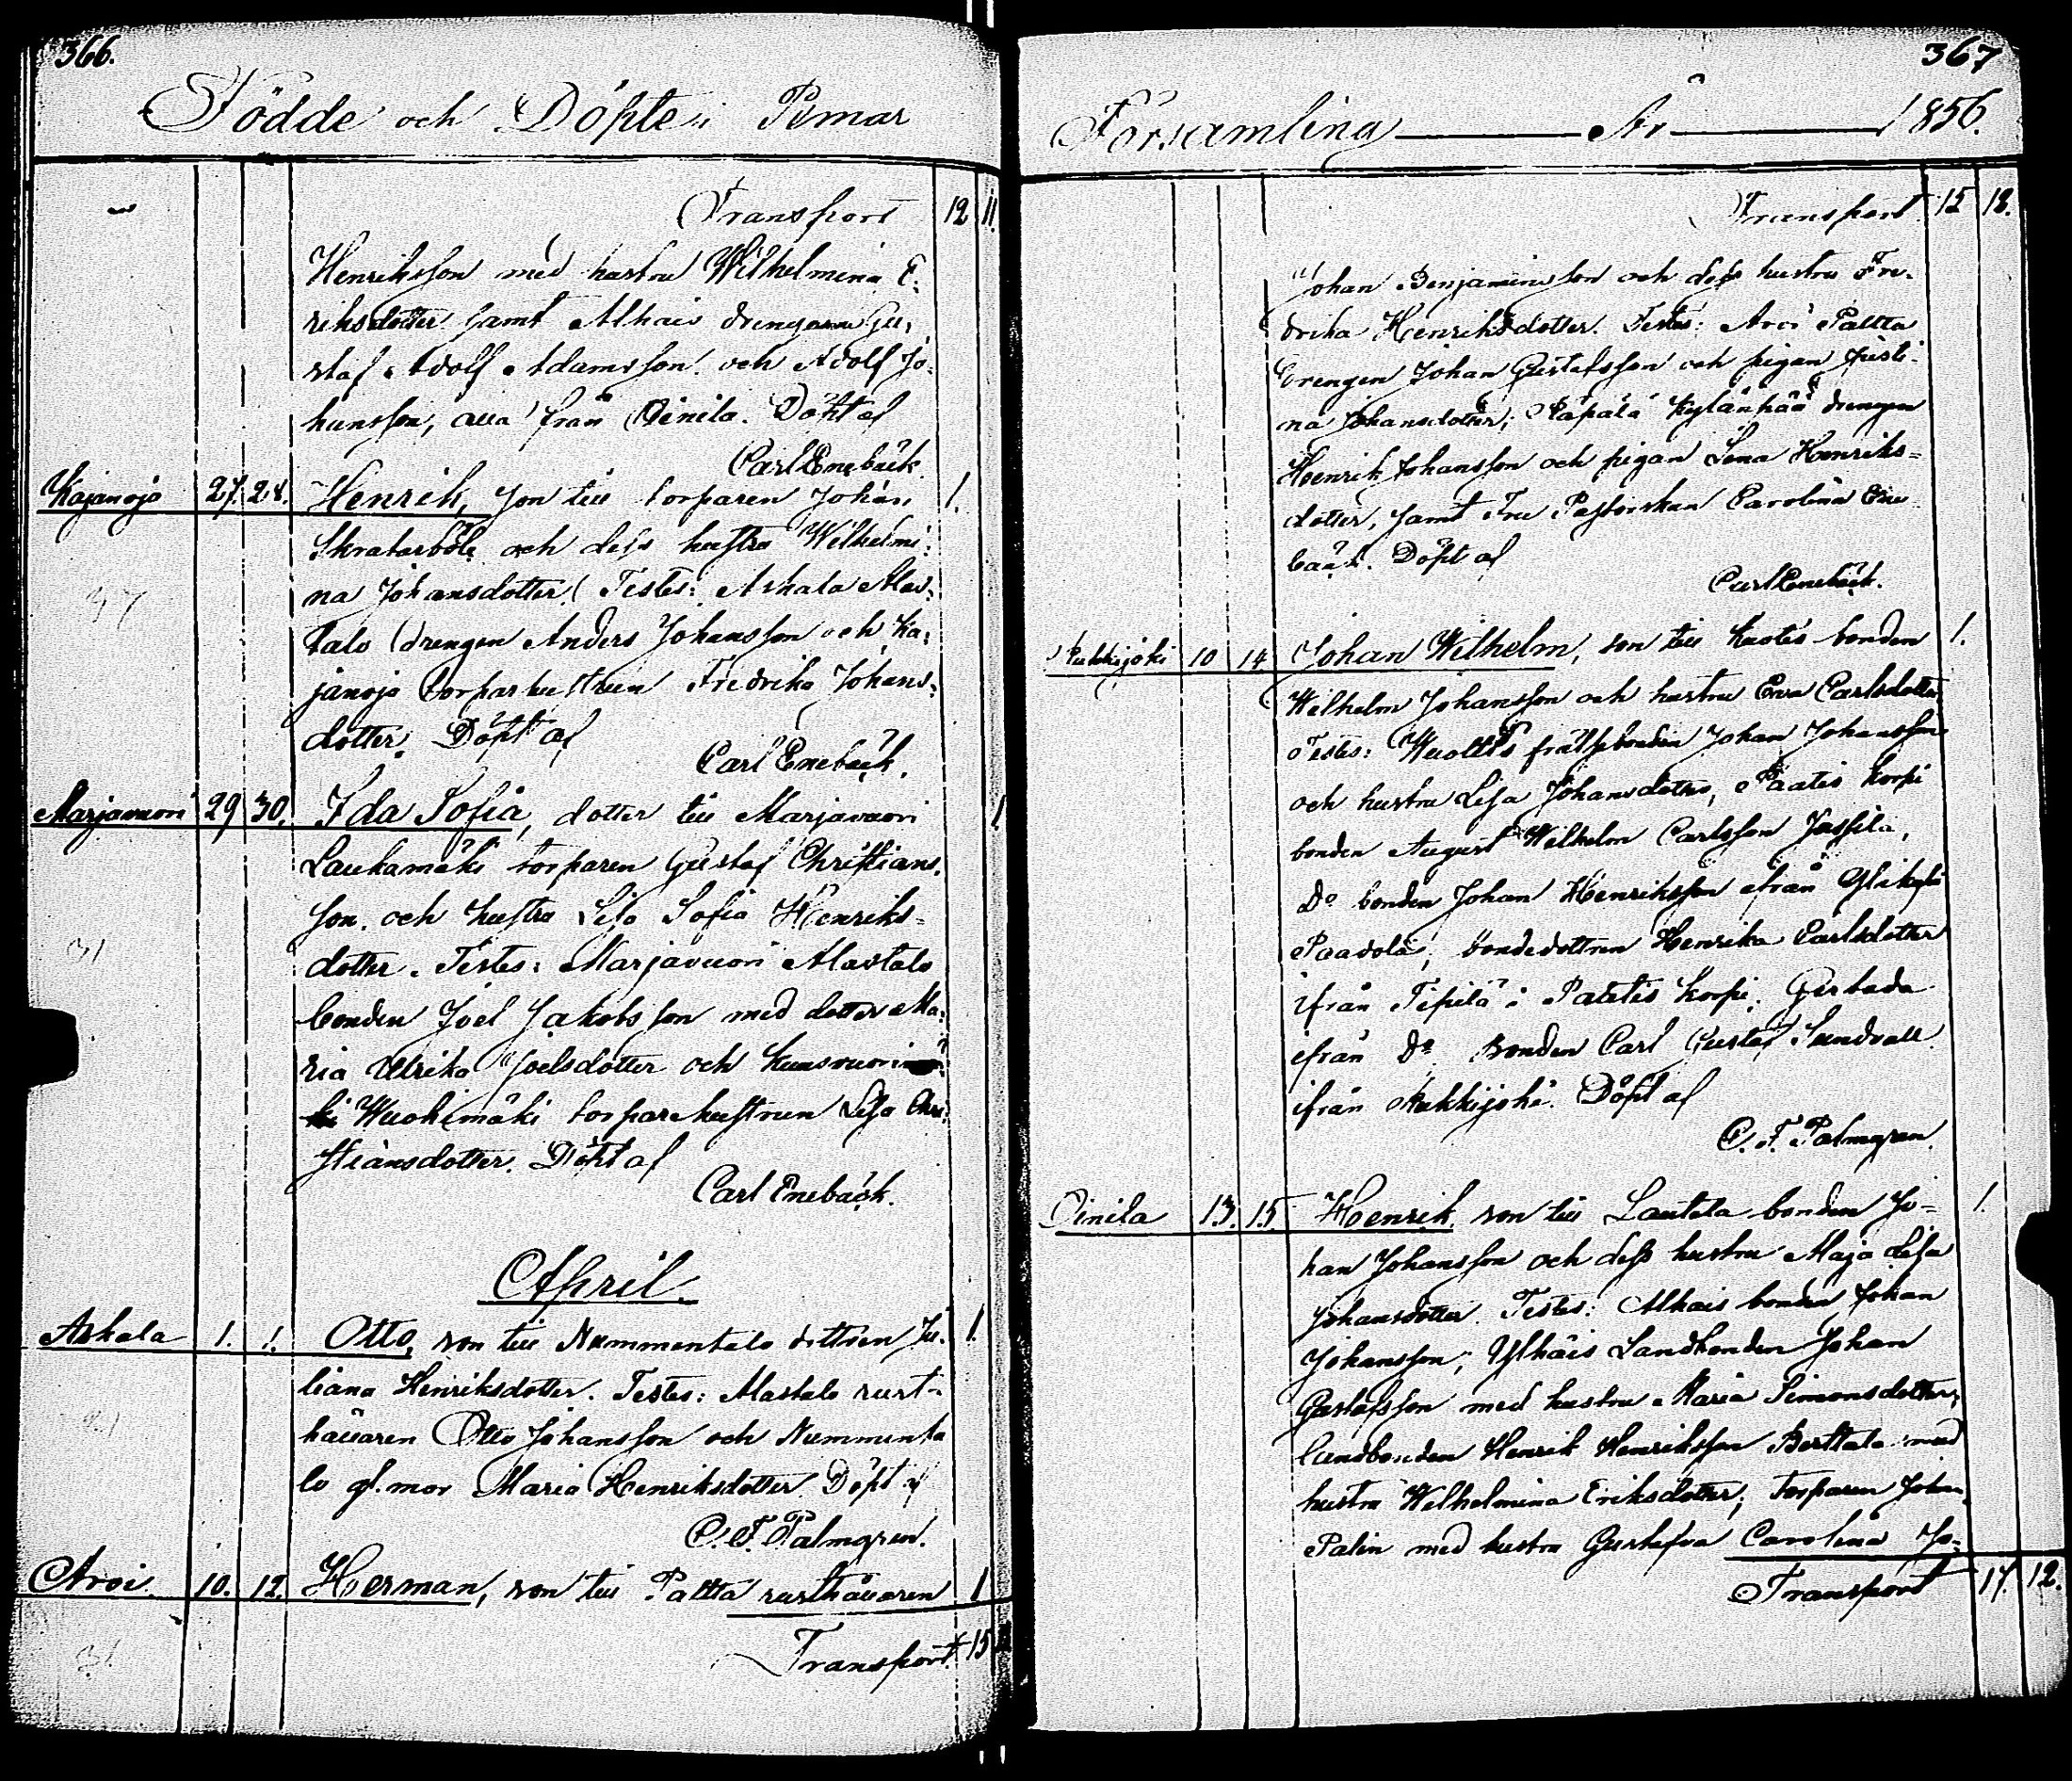 366.
Födde och Döpte i Pemar
Transport 12 11.
Henriksson med hustru Wilhelmina E-
riksdotter samt Alhais drengarne Gu-
staf Adolf Adamsson och Adolf Jo-
hansson, alla från Oinila. Döpt af
Carl Enebäck.
Kajanoja 27. 28. Henrik, son till torparen Johan 1.
Skratarböle och dess hustru Wilhelmi-
na Johansdotter. Testes: Askala Mas-
talo drengen Anders Johansson och Ka-
janoja torparhustrun Fredrika Johans-
dotter. Döpt af
Carl Enebäck.
37
Marjavuori 29 30. Ida Sofia, dotter till Marjavuori 1
Laukamäki torparen Gustaf Christians-
son och hustru Lisa Sofia Henriks-
dotter. Testes: Marjavuori Mastalo
bonden Joel Jakobsson med dotter Ma-
ria Ulrika Joelsdotter och Kuusvuori
Wuohimäki torparehustrun Lisa Chri-
stiansdotter. Döpt af
Carl Enebäck.
31
April.
Askala 1. 1. Otto, son till Nummentalo dottren Ju- 1.
liana Henriksdotter. Testes: Mastalo rust-
hållaren Otto Johansson och Nummenta
lo gl. mor Maria Henriksdotter. Döpt af
C. F. Palmgren.
Arvi. 10. 12. Herman, son till Paltta rusthållaren 1
Transport 15
31
367
Församling År 1856.
Transport 15 12.
Johan Benjaminsson och dess hustru Fre-
drika Henriksdotter. Testes: Arvi Paltta
drengen Johan Gustafsson och pigan Justi-
na Johansdotter; Räpälä Kylänpää drengen
Henrik Johansson och pigan Lena Henriks-
dotter, samt Fru Pastorskan Carolina Ene-
bäck. Döpt af
Carl Enebäck.
Rukkijoki 10 14 Johan Wilhelm, son till Knotis bonden 1.
Wilhelm Johansson och hustru Eva Carlsdotter
Testes: Wuoltis frälsebonden Johan Johansson
och hustru Lisa Johansdotter, Paatis Korpi
bonden August Wilhelm Carlsson Jussila,
Do bonden Johan Henriksson från Ylikylä
Paavola, bondedottren Henrika Carlsdotter
ifrån Tipilä i Paatis Korpi, Gertuda
ifrån Do Bonden Carl Gustaf Sundvall
ifrån Rukkijoki. Döpt af
C. F. Palmgren.
Oinila 13. 15 Henrik son till Lautala bonden Jo- 1.
han Johansson och dess hustru Maja Lisa
Johansdotter. Testes: Alhais bonden Johan
Johansson; Ylhäis Landbonden Johan
Gustafsson med hustru Maria Simonsdotter;
landbonden Henrik Henriksson Berttala med
hustru Wilhelmina Eriksdotter; Torparen Johan
Palin med hustru Gustafva Carolina Jo-
Transport 17. 12.